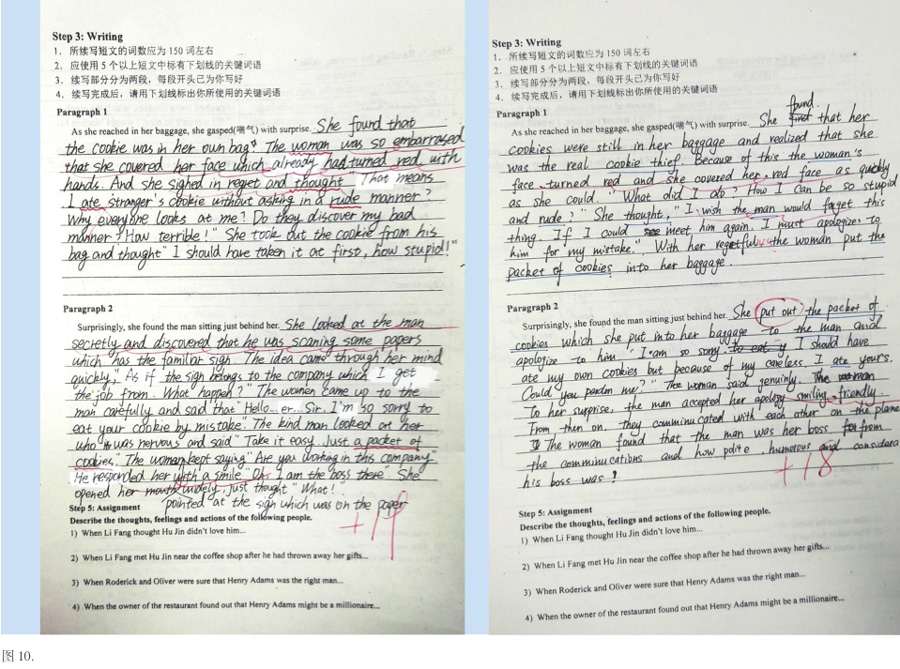 Step 3: Writing
1. 所续写短文的词数应为 150 词左右
2. 应使用 5 个以上短文中标有下划线的关键词语
3. 续写部分分为两段，每段开头已为你写好
4. 续写完成后，请用下划线标出你所使用的关键词语
Paragraph 1
As she reached in her baggage, she gasped(喘气) with surprise. She found that
the cookie was in her own bag. The woman was so embarrased
that she covered her face which already had turned red with
hands. And she sighed in regret and thought " That means
I ate stranger's cookie without asking in a rude manner?
Why everyone looks at me? Do they discover my bad
manner? How terrible!" She took out the cookie from his
bag and thought " I should have taken it at first, how stupid!"
Paragraph 2
Surprisingly, she found the man sitting just behind her. She looked at the man
secretly and discovered that he was scaning some papers
which has the familiar sign. The idea came through her mind
quickly," As if the sign belongs to the company which I get
the job from. What happen?" The women came up to the
man carefully and said that "Hello...er...Sir. I'm so sorry to
eat your cookie by mistake." The kind man looked at her
who was nervous and said " Take it easy. Just a packet of
cookies." The woman kept saying "Are you working in this company"
He responded her with a smile "Oh, I am the boss there" She
opened her mouth widely, just thought "What!
pointed at the sign which was on the paper
Step 5: Assignment
+19
Describe the thoughts, feelings and actions of the following people.
1) When Li Fang thought Hu Jin didn't love him...
2) When Li Fang met Hu Jin near the coffee shop after he had thrown away her gifts...
3) When Roderick and Oliver were sure that Henry Adams was the right man...
4) When the owner of the restaurant found out that Henry Adams might be a millionaire...
Step 3: Writing
1. 所续写短文的词数应为 150 词左右
2. 应使用 5 个以上短文中标有下划线的关键词语
3. 续写部分分为两段，每段开头已为你写好
4. 续写完成后，请用下划线标出你所使用的关键词语
Paragraph 1
found
As she reached in her baggage, she gasped(喘气) with surprise. She that her
cookies were still in her baggage and realized that she
was the real cookie thief. Because of this the woman's
face turned red and she covered her red face as quickly
as she could. "What did I do? How I can be so stupid
and rude?" She thought, "I wish the man would forget this
thing. If I could meet him again. I must apologize to
him for my mistake." With her regretful the woman put the
packet of cookies into her baggage.
Paragraph 2
Surprisingly, she found the man sitting just behind her. She put out the packet of
cookies which she put into her baggage to the man and
apologize to him "I am so sorry I should have
ate my own cookies but because of my careless I ate yours.
Could you pardon me?" The woman said genuinly.
To her surprise, the man accepted her apology smiling friendly.
From then on, they comminucated with each other on the plane
The woman found that the man was her boss from
the comminucations and how polite, humorous and considera
his boss was!
+18
Step 5: Assignment
Describe the thoughts, feelings and actions of the following people.
1) When Li Fang thought Hu Jin didn't love him...
2) When Li Fang met Hu Jin near the coffee shop after he had thrown away her gifts...
3) When Roderick and Oliver were sure that Henry Adams was the right man...
4) When the owner of the restaurant found out that Henry Adams might be a millionaire...
图 10.